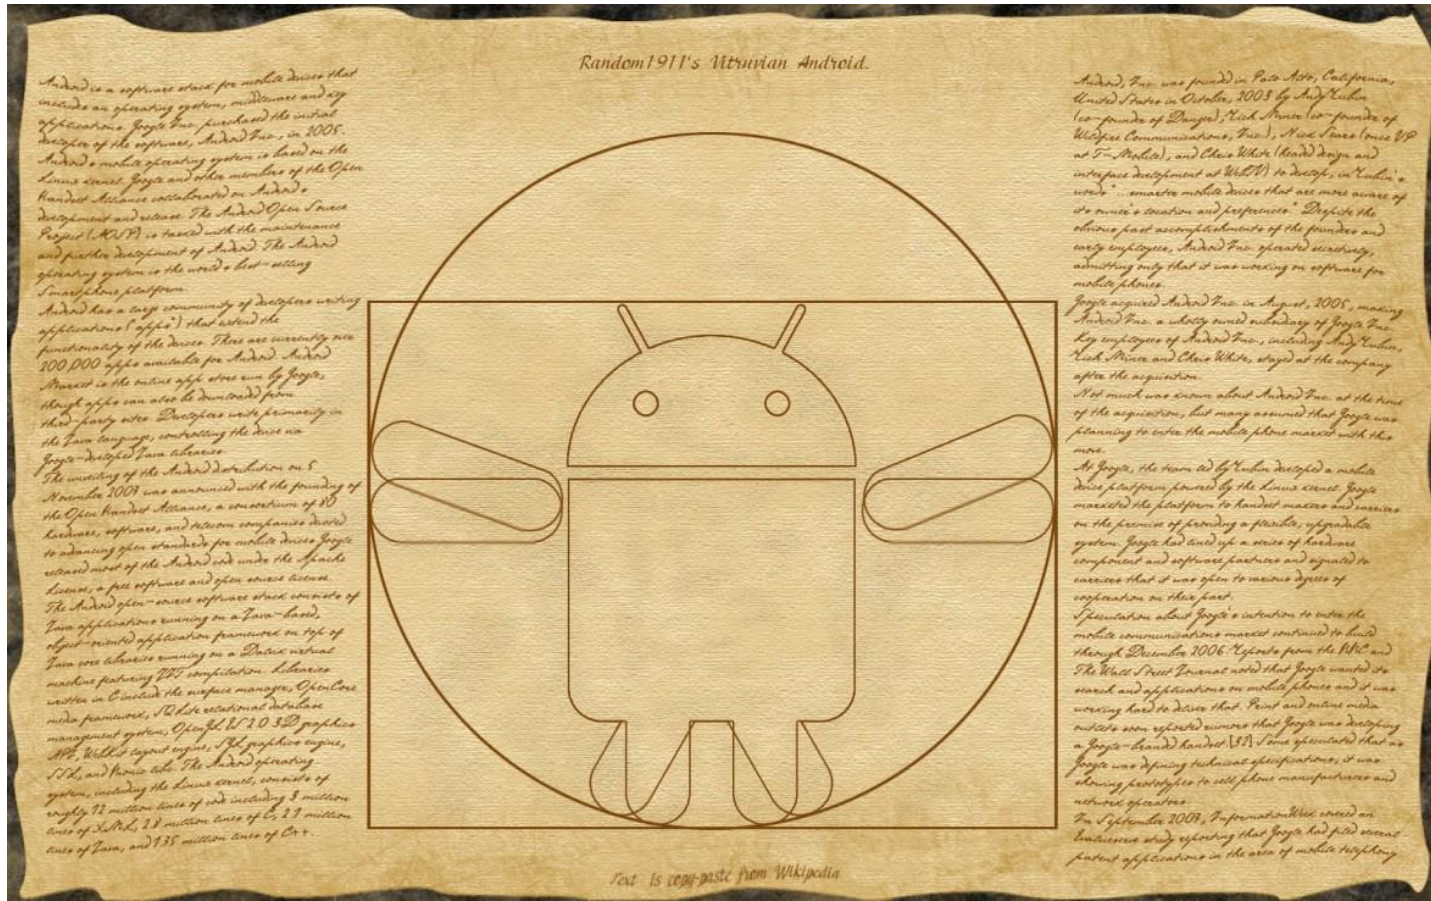 Random1911's Vitruvian Android.
Android is a software stack for mobile devices that
includes an operating system, middleware and key
applications. Google Inc. purchased the initial
developer of the software, Android Inc., in 2005.
Android's mobile operating system is based on the
Linux kernel. Google and other members of the Open
Handset Alliance collaborated on Android's
development and release. The Android Open Source
Project (AOSP) is tasked with the maintenance
and further development of Android. The Android
operating system is the world's best-selling
Smartphone platform.
Android has a large community of developers writing
applications ("apps") that extend the
functionality of the devices. There are currently over
200,000 apps available for Android. Android
Market is the online app store run by Google,
though apps can also be downloaded from
third-party sites. Developers write primarily in
the Java language, controlling the device via
Google-developed Java libraries.
The unveiling of the Android distribution on 5
November 2007 was announced with the founding of
the Open Handset Alliance, a consortium of 80
hardware, software, and telecom companies devoted
to advancing open standards for mobile devices. Google
released most of the Android code under the Apache
License, a free software and open source license.
The Android open-source software stack consists of
Java applications running on a Java-based,
object-oriented application framework on top of
Java core libraries running on a Dalvik virtual
machine featuring JIT compilation. Libraries
written in C include the surface manager, OpenCore
media framework, SQLite relational database
management system, OpenGL ES 2.0 3D graphics
API, WebKit layout engine, SGL graphics engine,
SSL, and Bionic libc. The Android operating
system, including the Linux kernel, consists of
roughly 12 million lines of code including 3 million
lines of XML, 2.8 million lines of C, 2.1 million
lines of Java, and 1.75 million lines of C++.
Android, Inc. was founded in Palo Alto, California,
United States in October, 2003 by Andy Rubin
(co-founder of Danger), Rich Miner (co-founder of
Wildfire Communications, Inc.), Nick Sears (once VP
at T-Mobile), and Chris White (headed design and
interface development at WebTV) to develop, in Rubin's
words "...smarter mobile devices that are more aware of
its owner's location and preferences." Despite the
obvious past accomplishments of the founders and
early employees, Android Inc. operated secretively,
admitting only that it was working on software for
mobile phones.
Google acquired Android Inc. in August, 2005, making
Android Inc. a wholly owned subsidiary of Google Inc.
Key employees of Android Inc., including Andy Rubin,
Rich Miner and Chris White, stayed at the company
after the acquisition.
Not much was known about Android Inc. at the time
of the acquisition, but many assumed that Google was
planning to enter the mobile phone market with this
move.
At Google, the team led by Rubin developed a mobile
device platform powered by the Linux kernel. Google
marketed the platform to handset makers and carriers
on the premise of providing a flexible, upgradable
system. Google had lined up a series of hardware
component and software partners and signaled to
carriers that it was open to various degrees of
cooperation on their part.
Speculation about Google's intention to enter the
mobile communications market continued to build
through December 2006. Reports from the BBC and
The Wall Street Journal noted that Google wanted its
search and applications on mobile phones and it was
working hard to deliver that. Print and online media
outlets soon reported rumors that Google was developing
a Google-branded handset.[32] Some speculated that as
Google was defining technical specifications, it was
showing prototypes to cell phone manufacturers and
network operators.
In September 2007, InformationWeek covered an
Evalueserve study reporting that Google had filed several
patent applications in the area of mobile telephony.
Text is copy-paste from Wikipedia